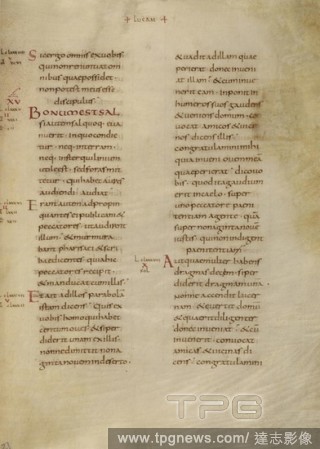 + LUCAN +
Sic ergo omnis ex uobis
qui non renuntiat om
nibus quae possidet
non potest meus esse
discipulus
XV
BONUM EST SAL
si autem sal quoq· eua
nuerit · in quo condie
tur · neq· in terram
neq· in sterquilinium
utile est · sed foras mit
tetur · qui habet aures
audiendi audiat
Erant autem adpropin
quantes ei publicani &
peccatores · ut audirent
illum · & murmura
bant pharisaei & scri
bae dicentes · quia hic
peccatores recepit
& manducat cum illis
Et ait ad illos parabolā
istam dicens · quis ex
uobis homo qui habet
centum oues · & si per
diderit unam ex illis
nonne dimittit nona
ginta nouem in deserto
& uadit ad illam quae
perierat · donec inueni
at illam · & cum inue
nerit eam · inponit in
humeros suos gaudens
& ueniens domum · con
uocat amicos & uici
nos dicens illis
congratulamini mi
hi quia inueni ouem meā
quae perierat · dico uo
bis · quod ita gaudium
erit in caelo · super
uno peccatore paeni
tentiam agente · quā
super nonaginta noue
iustis · qui non indigent
paenitentiam
Aut quae mulier habens
dragmas decem · si per
diderit dragmam unā
nonne accendit lucer
nam · & euerrit domum
& querit diligenter
donec inueniat · & cū
inuenerit · conuocat
amicas & uicinas di
cens · congratulamini
TPG
www.tpgnews.com / 達志影像